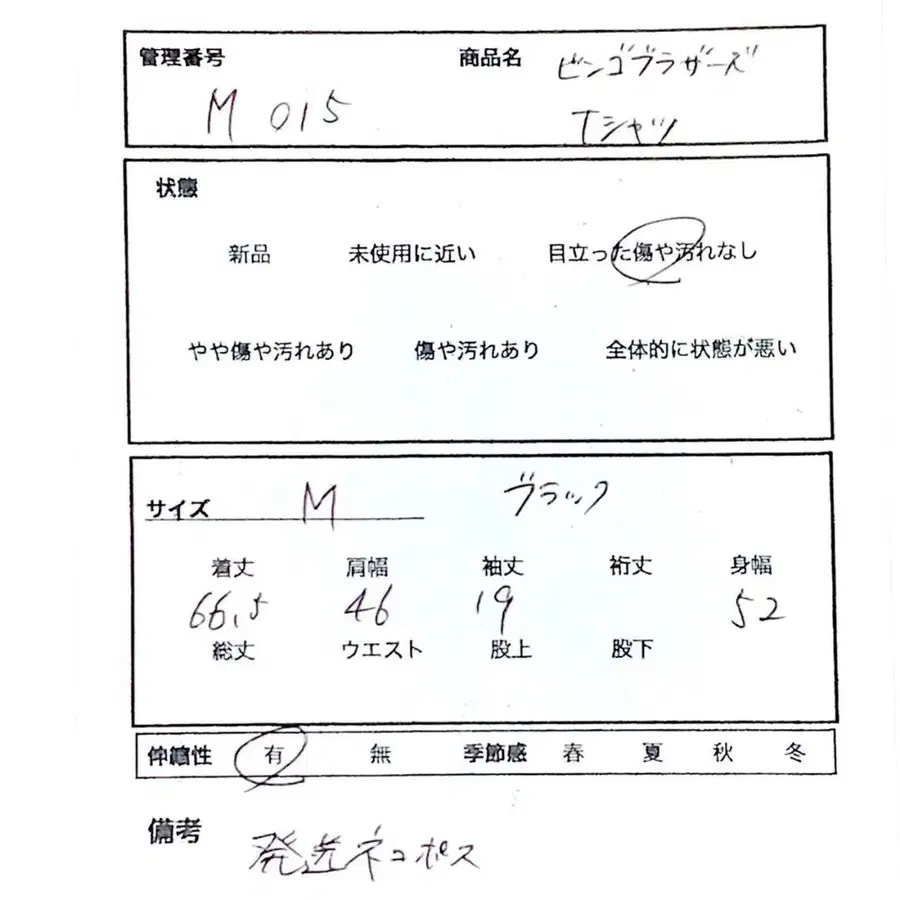 管理番号 商品名 ビンゴブラザーズ
M 015 Tシャツ
状態
新品 未使用に近い 目立った傷や汚れなし
やや傷や汚れあり 傷や汚れあり 全体的に状態が悪い
サイズ M ブラック
着丈 肩幅 袖丈 裄丈 身幅
66.5 46 19 52
総丈 ウエスト 股上 股下
伸縮性 有 無 季節感 春 夏 秋 冬
備考 発送ネコポス